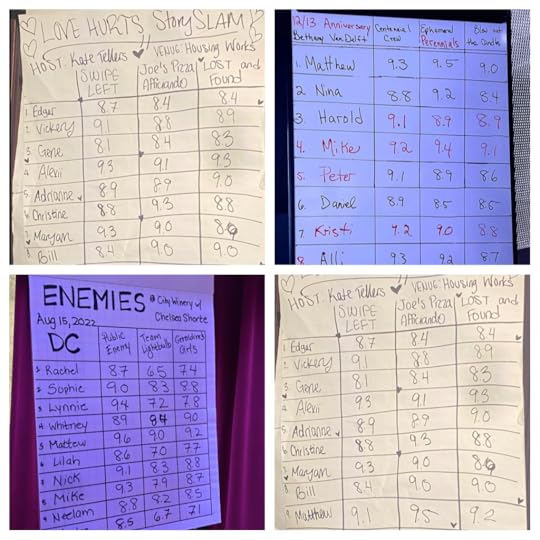 LOVE HURTS StorySLAM
HOST: Kate Tellers VENUE: Housing Works
SWIPE LEFT Joe's Pizza Afficiando LOST and Found
1 Edgar 8.7 8.4 8.4
2 Vickery 9.1 8.8 8.9
3 Gene 8.1 8.4 8.3
4 Alexii 9.3 9.1 9.3
5 Adrianne 8.9 8.9 9.0
6 Christine 8.8 9.3 8.8
7 Maryam 9.3 9.0
8 Bill 8.4 9.0 9.0
12/13 Anniversary
Bethany Van Delft
Centennial Crew Ephemeral Perennials Blow out the Candles
1. Matthew 9.3 9.5 9.0
2 Nina 8.8 9.2 8.4
3 Harold 9.1 8.9 8.9
4. Mike 9.2 9.4 9.1
5 Peter 9.1 8.9 8.6
6. Daniel 8.9 8.5 8.5
7 Kristi 9.2 9.0 8.8
8 Alli 9.3 9.2 8.7
ENEMIES @ City Winery w/
Chelsea Shorte
Aug 15, 2022
DC
Public Enemy Team Lightbulb Geraldine's Girls
1 Rachel 8.7 6.5 7.4
2 Sophie 9.0 8.3 8.8
3 Lynnie 9.4 7.2 7.8
4 Whitney 8.9 8.4 9.0
5 Mattew 9.6 9.0 9.2
6 Lilah 8.6 7.0 7.7
7 Nick 9.1 8.3 8.8
8 Mike 9.3 7.9 8.7
9 Neelam 8.8 8.2 8.5
8.5 6.7 7.1
HOST: Kate Tellers VENUE: Housing Works
SWIPE LEFT Joe's Pizza Afficiando LOST and Found
1 Edgar 8.7 8.4 8.4
2 Vickery 9.1 8.8 8.9
3 Gene 8.1 8.4 8.3
4 Alexii 9.3 9.1 9.3
5 Adrianne 8.9 8.9 9.0
6 Christine 8.8 9.3 8.8
7 Maryam 9.3 9.0
8 Bill 8.4 9.0 9.0
9 Matthew 9.1 9.5 9.2